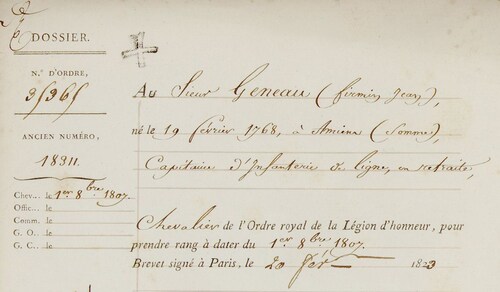 DOSSIER.
N.º D'ORDRE,
ANCIEN NUMÉRO,
18311.
Chev... le 1er 8bre 1807.
Offic... le
Comm. le
G. O... le
G. C... le
Au Sieur Geneau (firmin Jean),
né le 19 février 1768, à Amiens (Somme),
Capitaine d'Infanterie de ligne, en retraite,
Chevalier de l'Ordre royal de la Légion d'honneur, pour
prendre rang à dater du 1er 8bre 1807.
Brevet signé à Paris, le 20 fév 1823